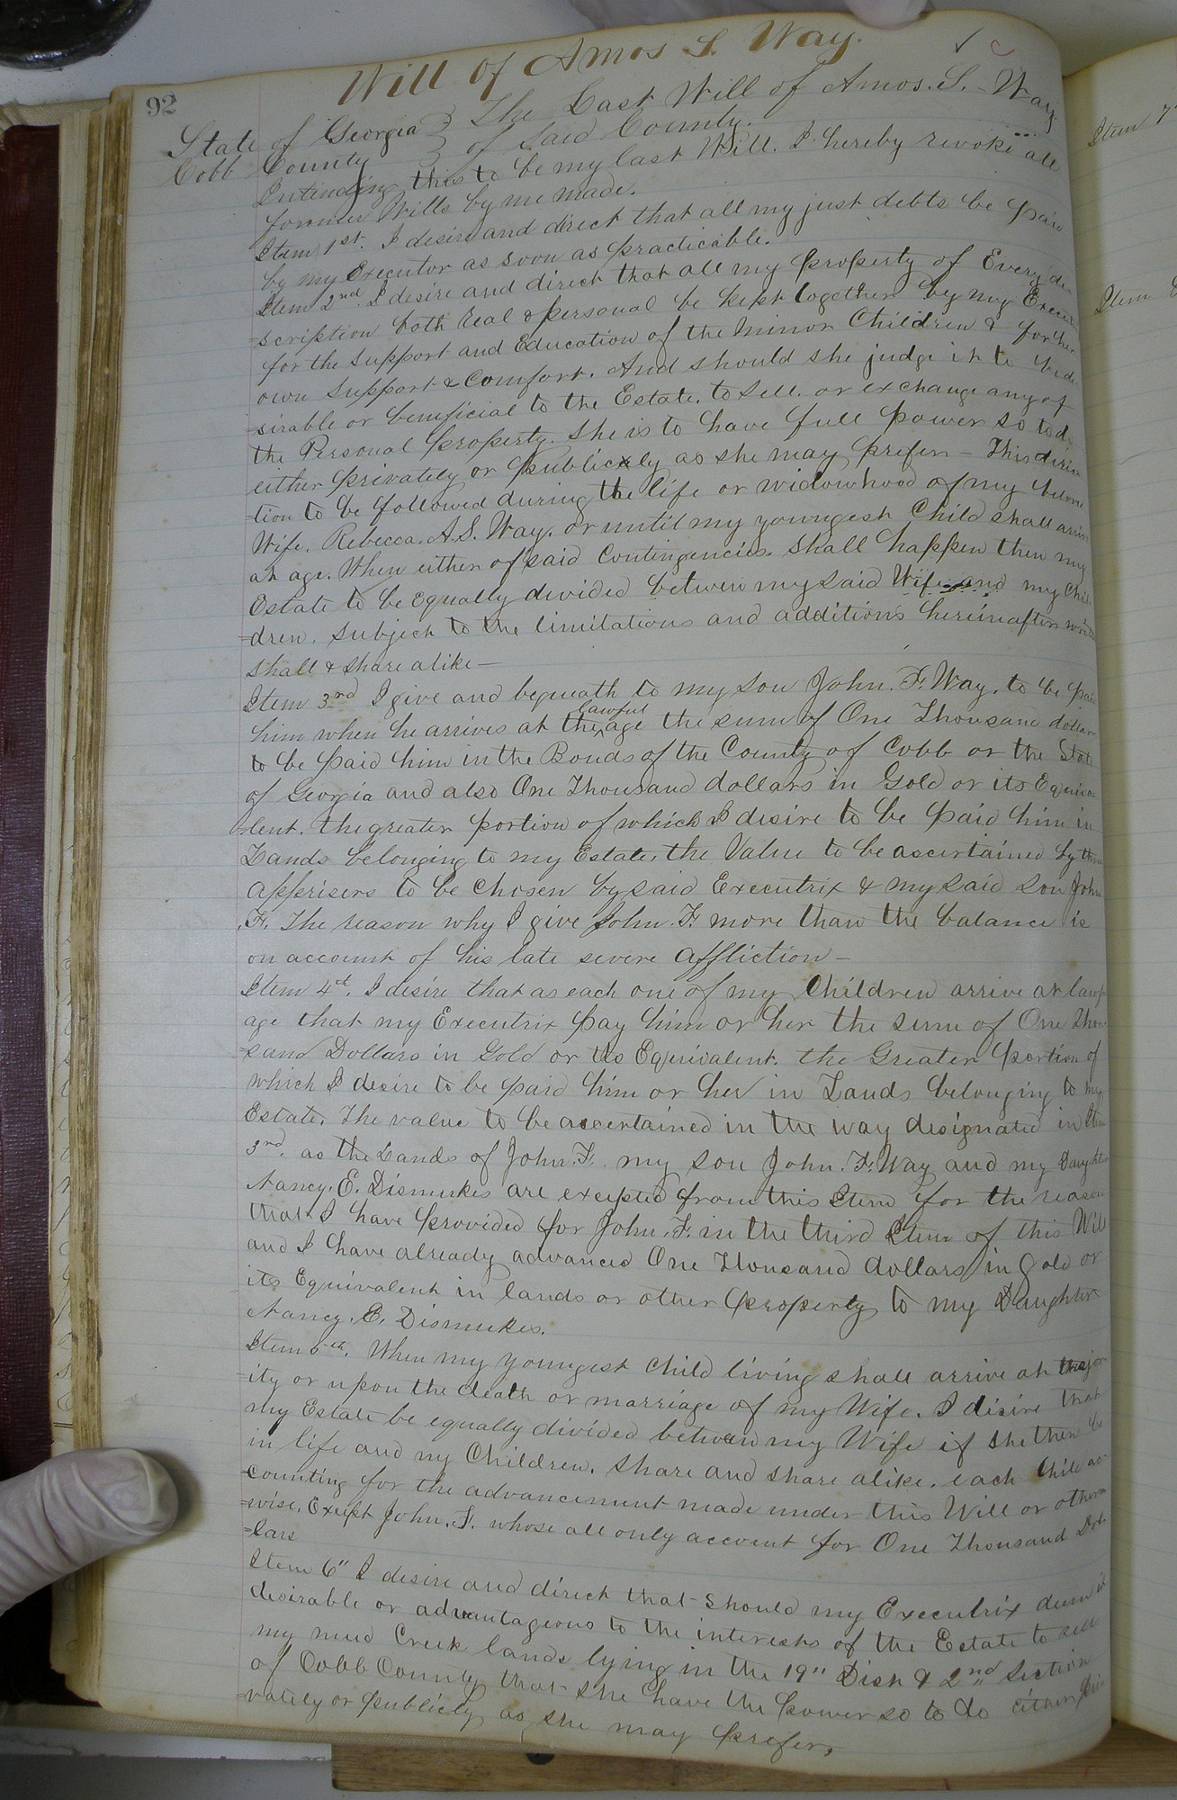 Will of Amos S. Way.
92
State of Georgia } The Last Will of Amos. S. Way
Cobb County } of Said County.
Intending this to be my last Will. I hereby revoke all
former Wills by me made.
Item 1st. I desire and direct that all my just debts be paid
by my Executor as soon as practicable.
Item 2nd I desire and direct that all my property of Every de-
=scription both real & personal be kept together by my Execu
for the support and Education of the Minor Children & for her
own support & comfort. And should she judge it to be de-
=sirable or beneficial to the Estate. to sell. or exchange any of
the Personal property. She is to have full power so to do
either privately or publicly as she may prefer – This direc
=tion to be followed during the life or widowhood of my belove
Wife. Rebecca. A. S. Way. or until my youngest Child shall arriv
at age. When either of said Contingencies. shall happen then my
Estate to be equally divided between my said Wife and my Chil
=dren. subject to the limitations and additions hereinafter
shall & share alike –
Item 3rd I give and bequeath to my son John. F. Way. to be paid
him when he arrives at the lawful age the sum of One Thousand dollars
to be paid him in the Bonds of the County of Cobb or the State
of Georgia and also One Thousand dollars in Gold or its Equiva
=lent. the greater portion of which I desire to be paid him in
Lands belonging to my Estate, the Value to be ascertained by three
apprisers to be chosen by said Executrix & my said son John
F. The reason why I give John. F. more than the balance is
on account of his late severe affliction –
Item 4th. I desire that as each one of my Children arrive at lawf
age that my Executrix pay him or her the sum of One Thou-
=sand Dollars in Gold or its Equivalent. the Greater portion of
which I desire to be paid him or her in Lands belonging to my
Estate. The value to be ascertained in the way designated in Item
3rd. as the Lands of John. F. my son John. F. Way and my Daughter
Nancy. E. Dismukes are excepted from this Item for the reason
that I have provided for John. F. in the third Item of this Will
and I have already advanced One Thousand dollars in Gold or
its Equivalent in lands or other property to my Daughter
Nancy. E. Dismukes.
Item 5th. When my youngest Child living shall arrive at major
=ity or upon the death or marriage of my Wife. I desire that
my Estate be equally divided between my Wife if she then be
in life and my Children. share and share alike. each Child ac-
=counting for the advancement made under this Will or other
=wise. Except John. F. whose all only account for One Thousand Dol-
=lars
Item 6" I desire and direct that should my Executrix deem it
desirable or advantageous to the interests of the Estate to sell
my mud Creek lands lying in the 19" Dist & 2nd Section
of Cobb County that she have the power so to do either pri
=vately or publicly as she may prefer.
Item 7
Item 8